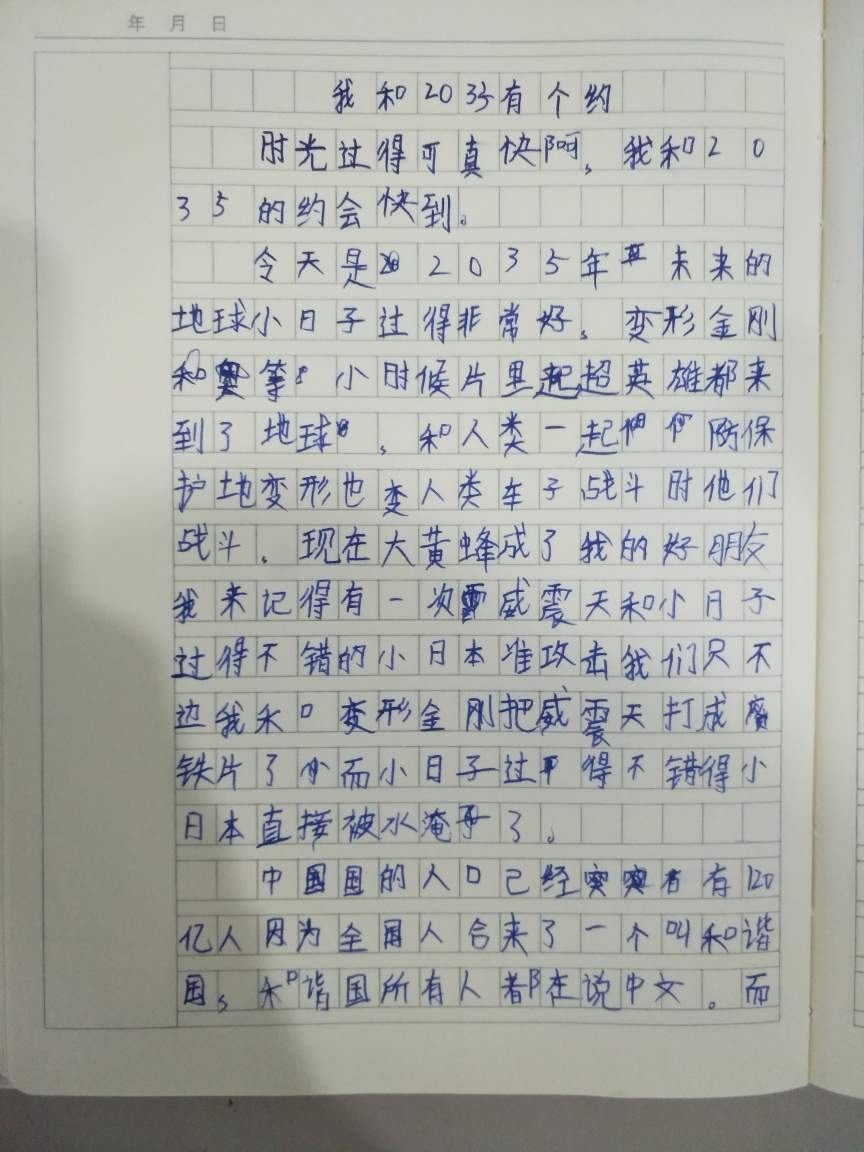 年 月 日
我和2035有个约
时光过得可真快啊，我和20
35的约会快到。
今天是2035年未来的
地球小日子过得非常好，变形金刚
和等小时候片里超英雄都来
到了地球，和人类一起防保
护地变形也变人类车子战斗时他们
战斗，现在大黄蜂成了我的好朋友
我来记得有一次威震天和小日子
过得不错的小日本准攻击我们只不
边我和变形金刚把威震天打成废
铁片了而小日子过得不错得小
日本直接被水淹了。
中国的人口已经有120
亿人因为全国人合来了一个叫和谐
国，和谐国所有人都在说中文。而